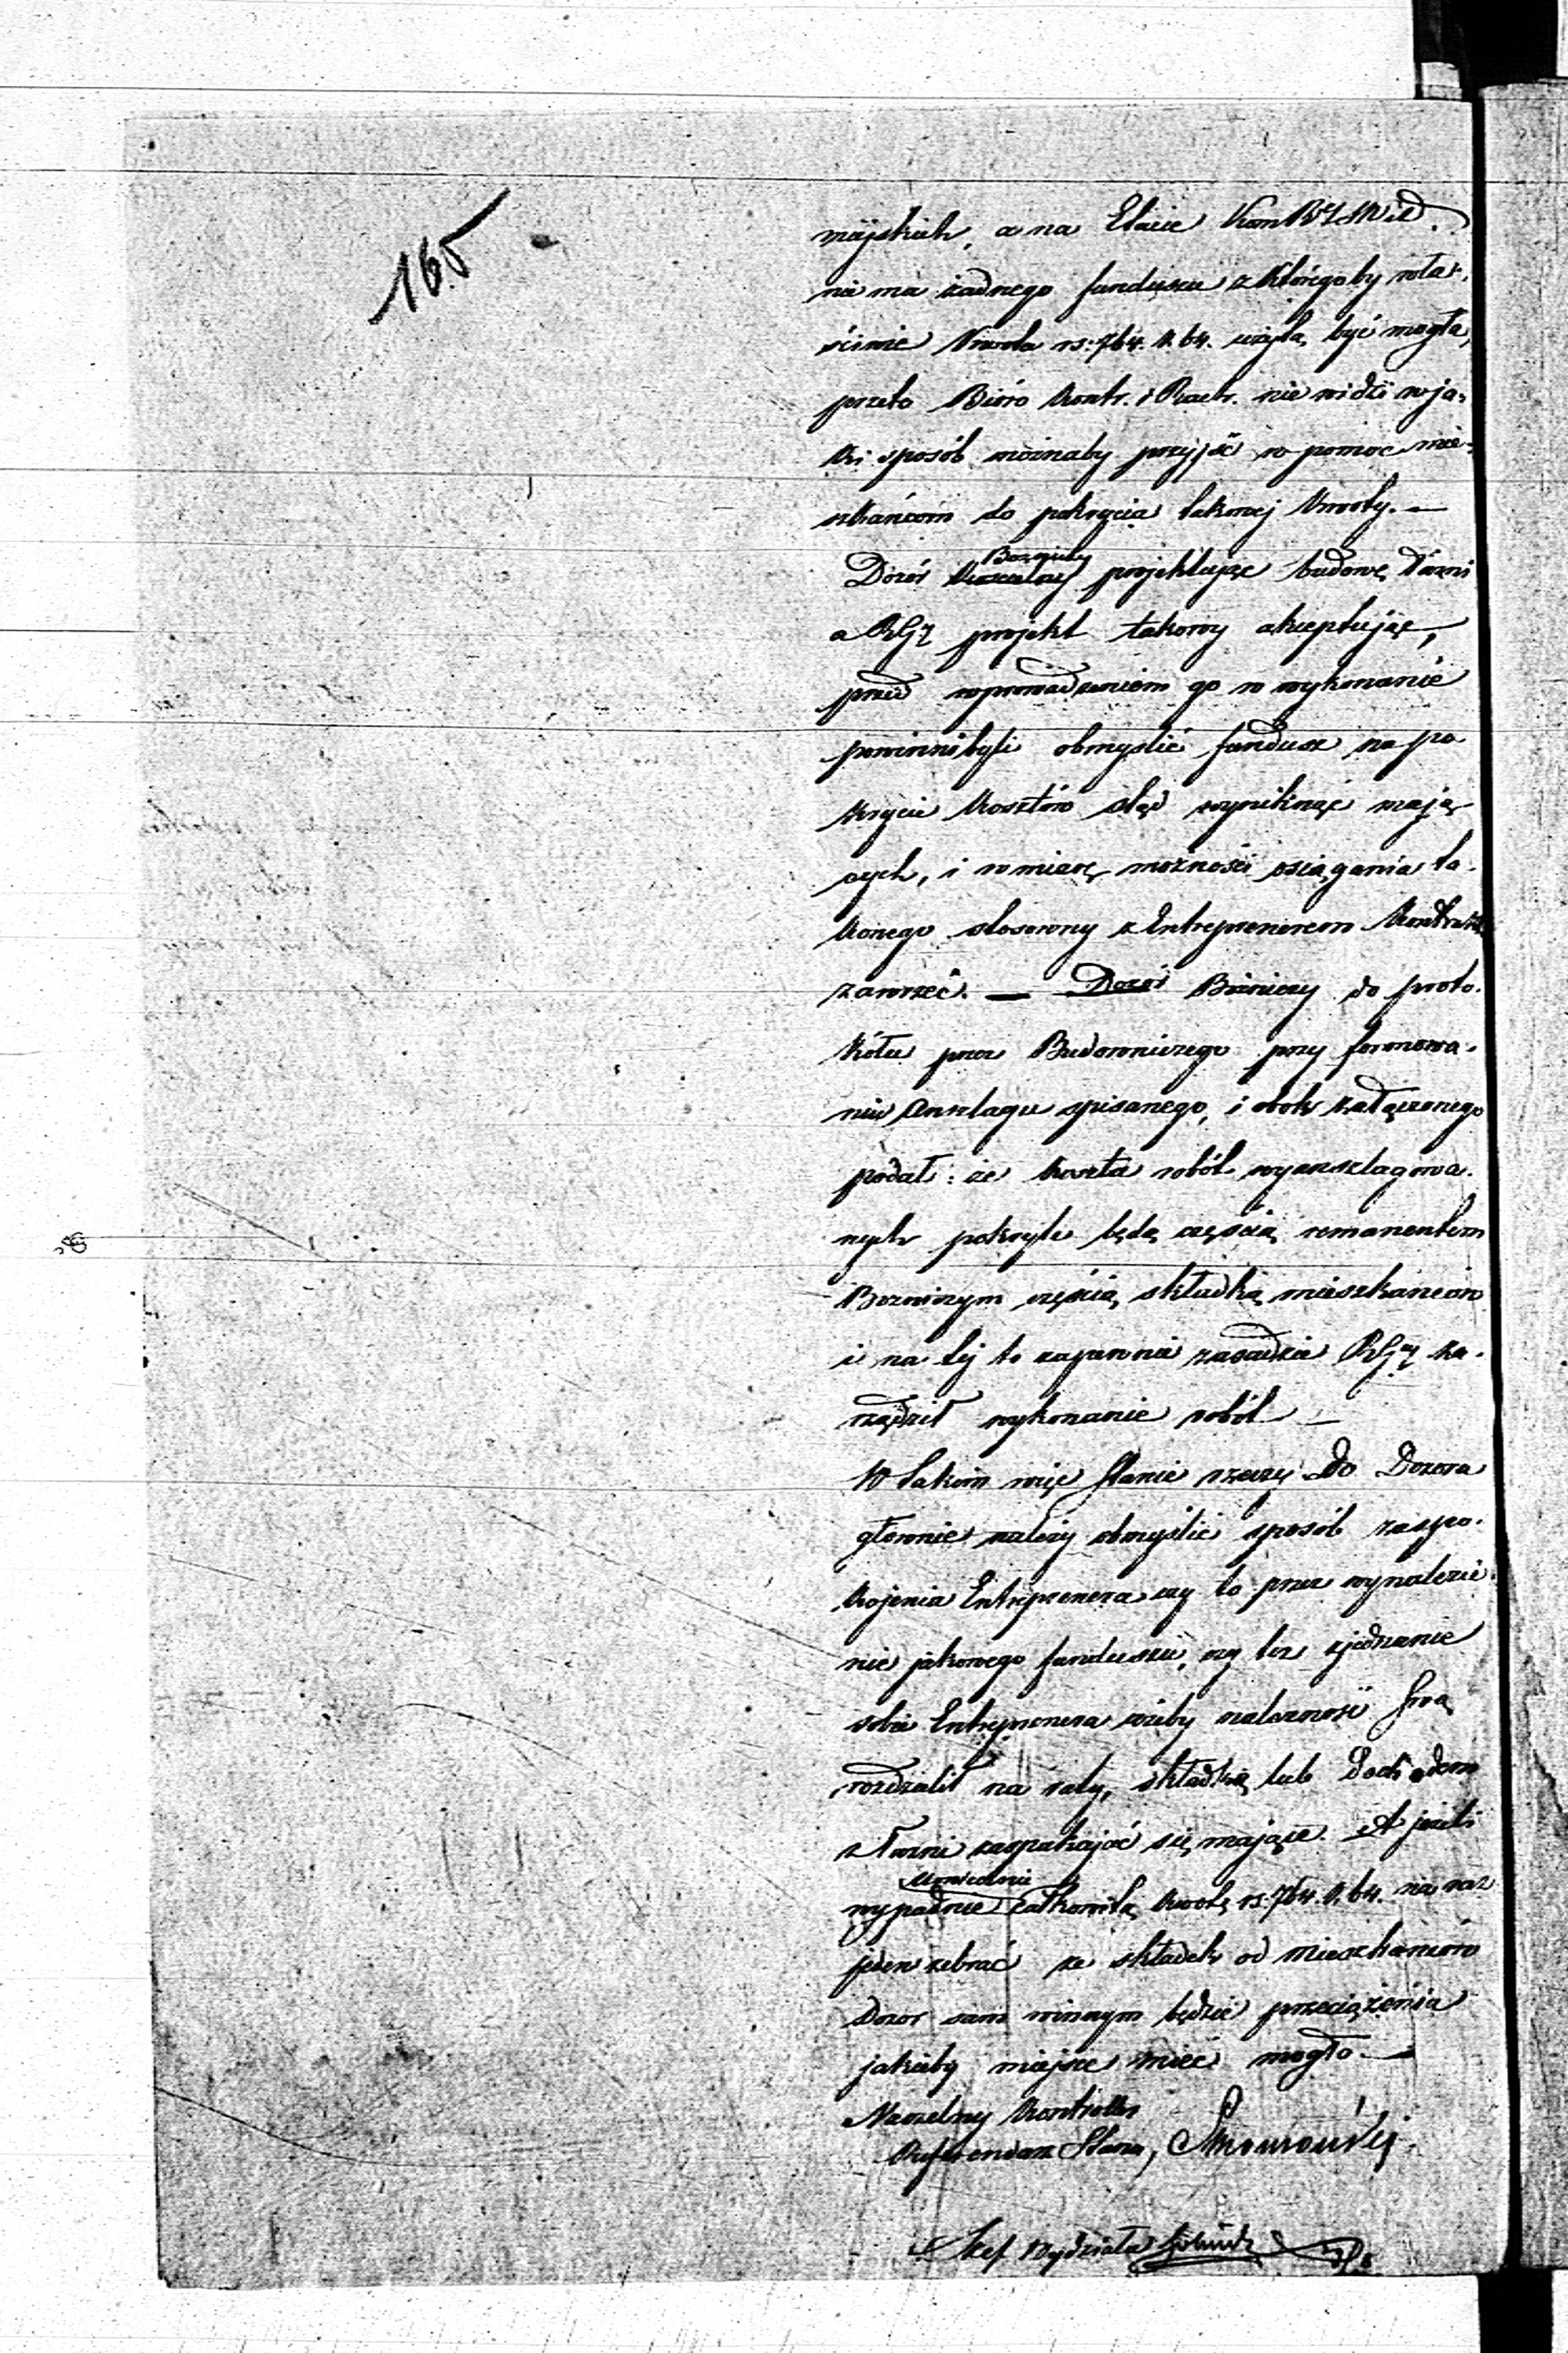 165
miejskich, a na Etacie Kom RzSWiD.
nie ma żadnego funduszu z któregoby wła-
ściwie Kwota rs: 764. k. 64. użytą być mogła,
przeto Bióro Kontr. i Rach. nie widzi w ja-
ki sposób możnaby przyjść w pomoc mie-
szkańcom do pokrycia takowej Kwoty. —
Dozór Bożniczy projektując budowę łaźni
a RGz projekt takowy akceptując,
przed wprowadzeniem go w wykonanie
powinni byli obmyślić fundusz na po-
krycie kosztów stąd wyniknąć mają-
cych, i w miarę możności osiągania ta-
kowego stosowny z Entreprenerem Kontrakt
zawrzeć. — Dozór Bóżniczy do proto-
kółu przez Budowniczego przy formowa-
niu Anszlagu spisanego, i obok załączonego
podał: że koszta robót wyanszlagowa-
nych pokryte będą częścią remanentem
Bozniczym częścią składką mieszkańców
i na tej to zapewnie zasadzie RGz za-
rządził wykonanie robót —
W takim więc stanie rzeczy do Dozoru
głównie należy obmyślić sposób zaspo-
kojenia Entreprenera czy to przez wynalezie-
nie jakowego funduszu, czy też zjednanie
sobie Entreprenera ażeby należność swą
rozdzielił na raty, składką lub Dochodem
z łaźni zaspakajać się mające. A jeżeli
koniecznie
wypadnie całkowitą kwotę rs. 764. k. 64. na raz
jeden zebrać ze składek od mieszkańców
Dozór sam winnym będzie przeciążenia
jakieby miejsce mieć mogło. —
Naczelny Kontroller
Referendarz Stanu,
Szef Wydziału